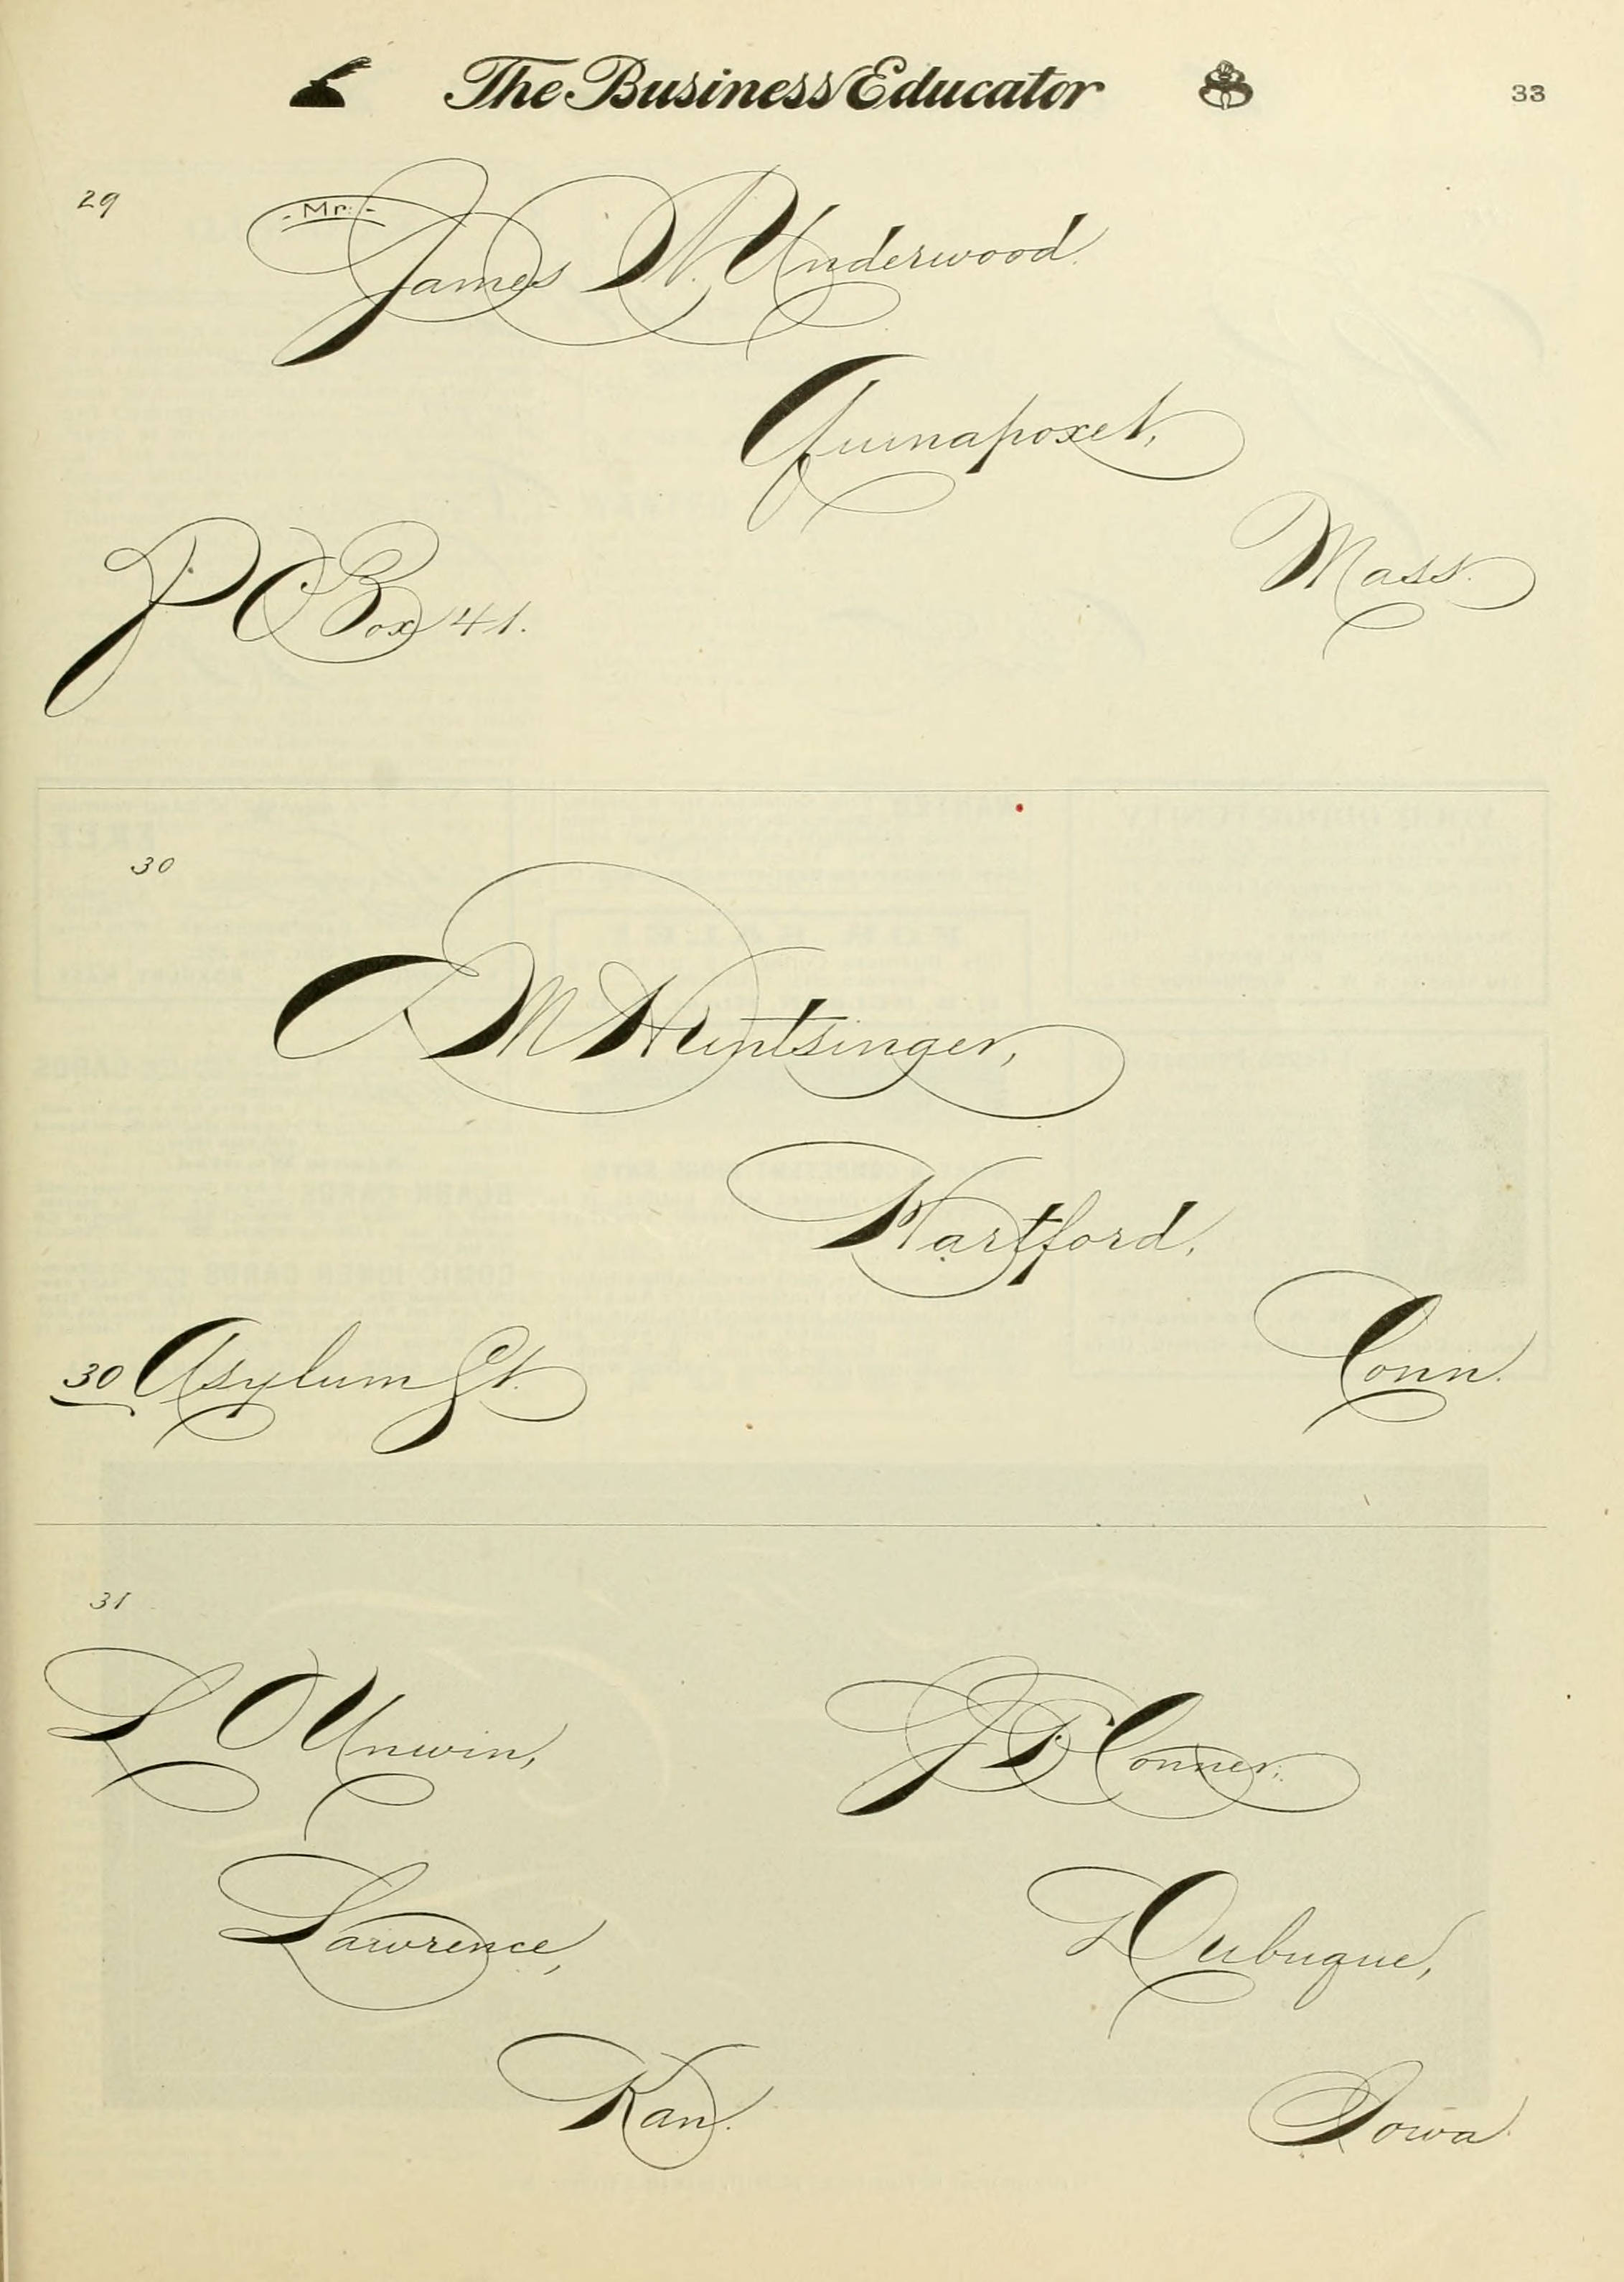 The Business Educator
33
29
Mr.
James N. Underwood.
Quinapoxet,
Mass.
P.O. Box 41.
30
E M Huntsinger,
Hartford,
Conn.
30 Asylum St.
31
L O Unwin,
Lawrence,
Kan.
J F Conner,
Dubuque,
Iowa